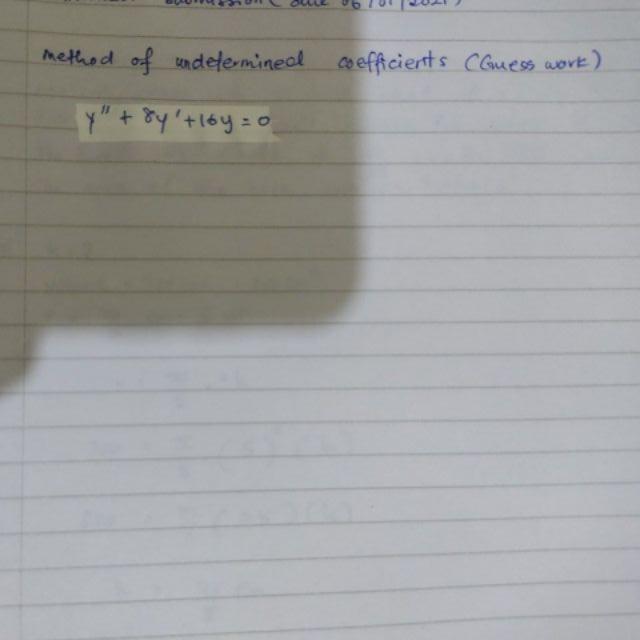 submission (due 06/01/2021)
method of undetermined coefficients (Guess work)
y'' + 8y' + 16y = 0